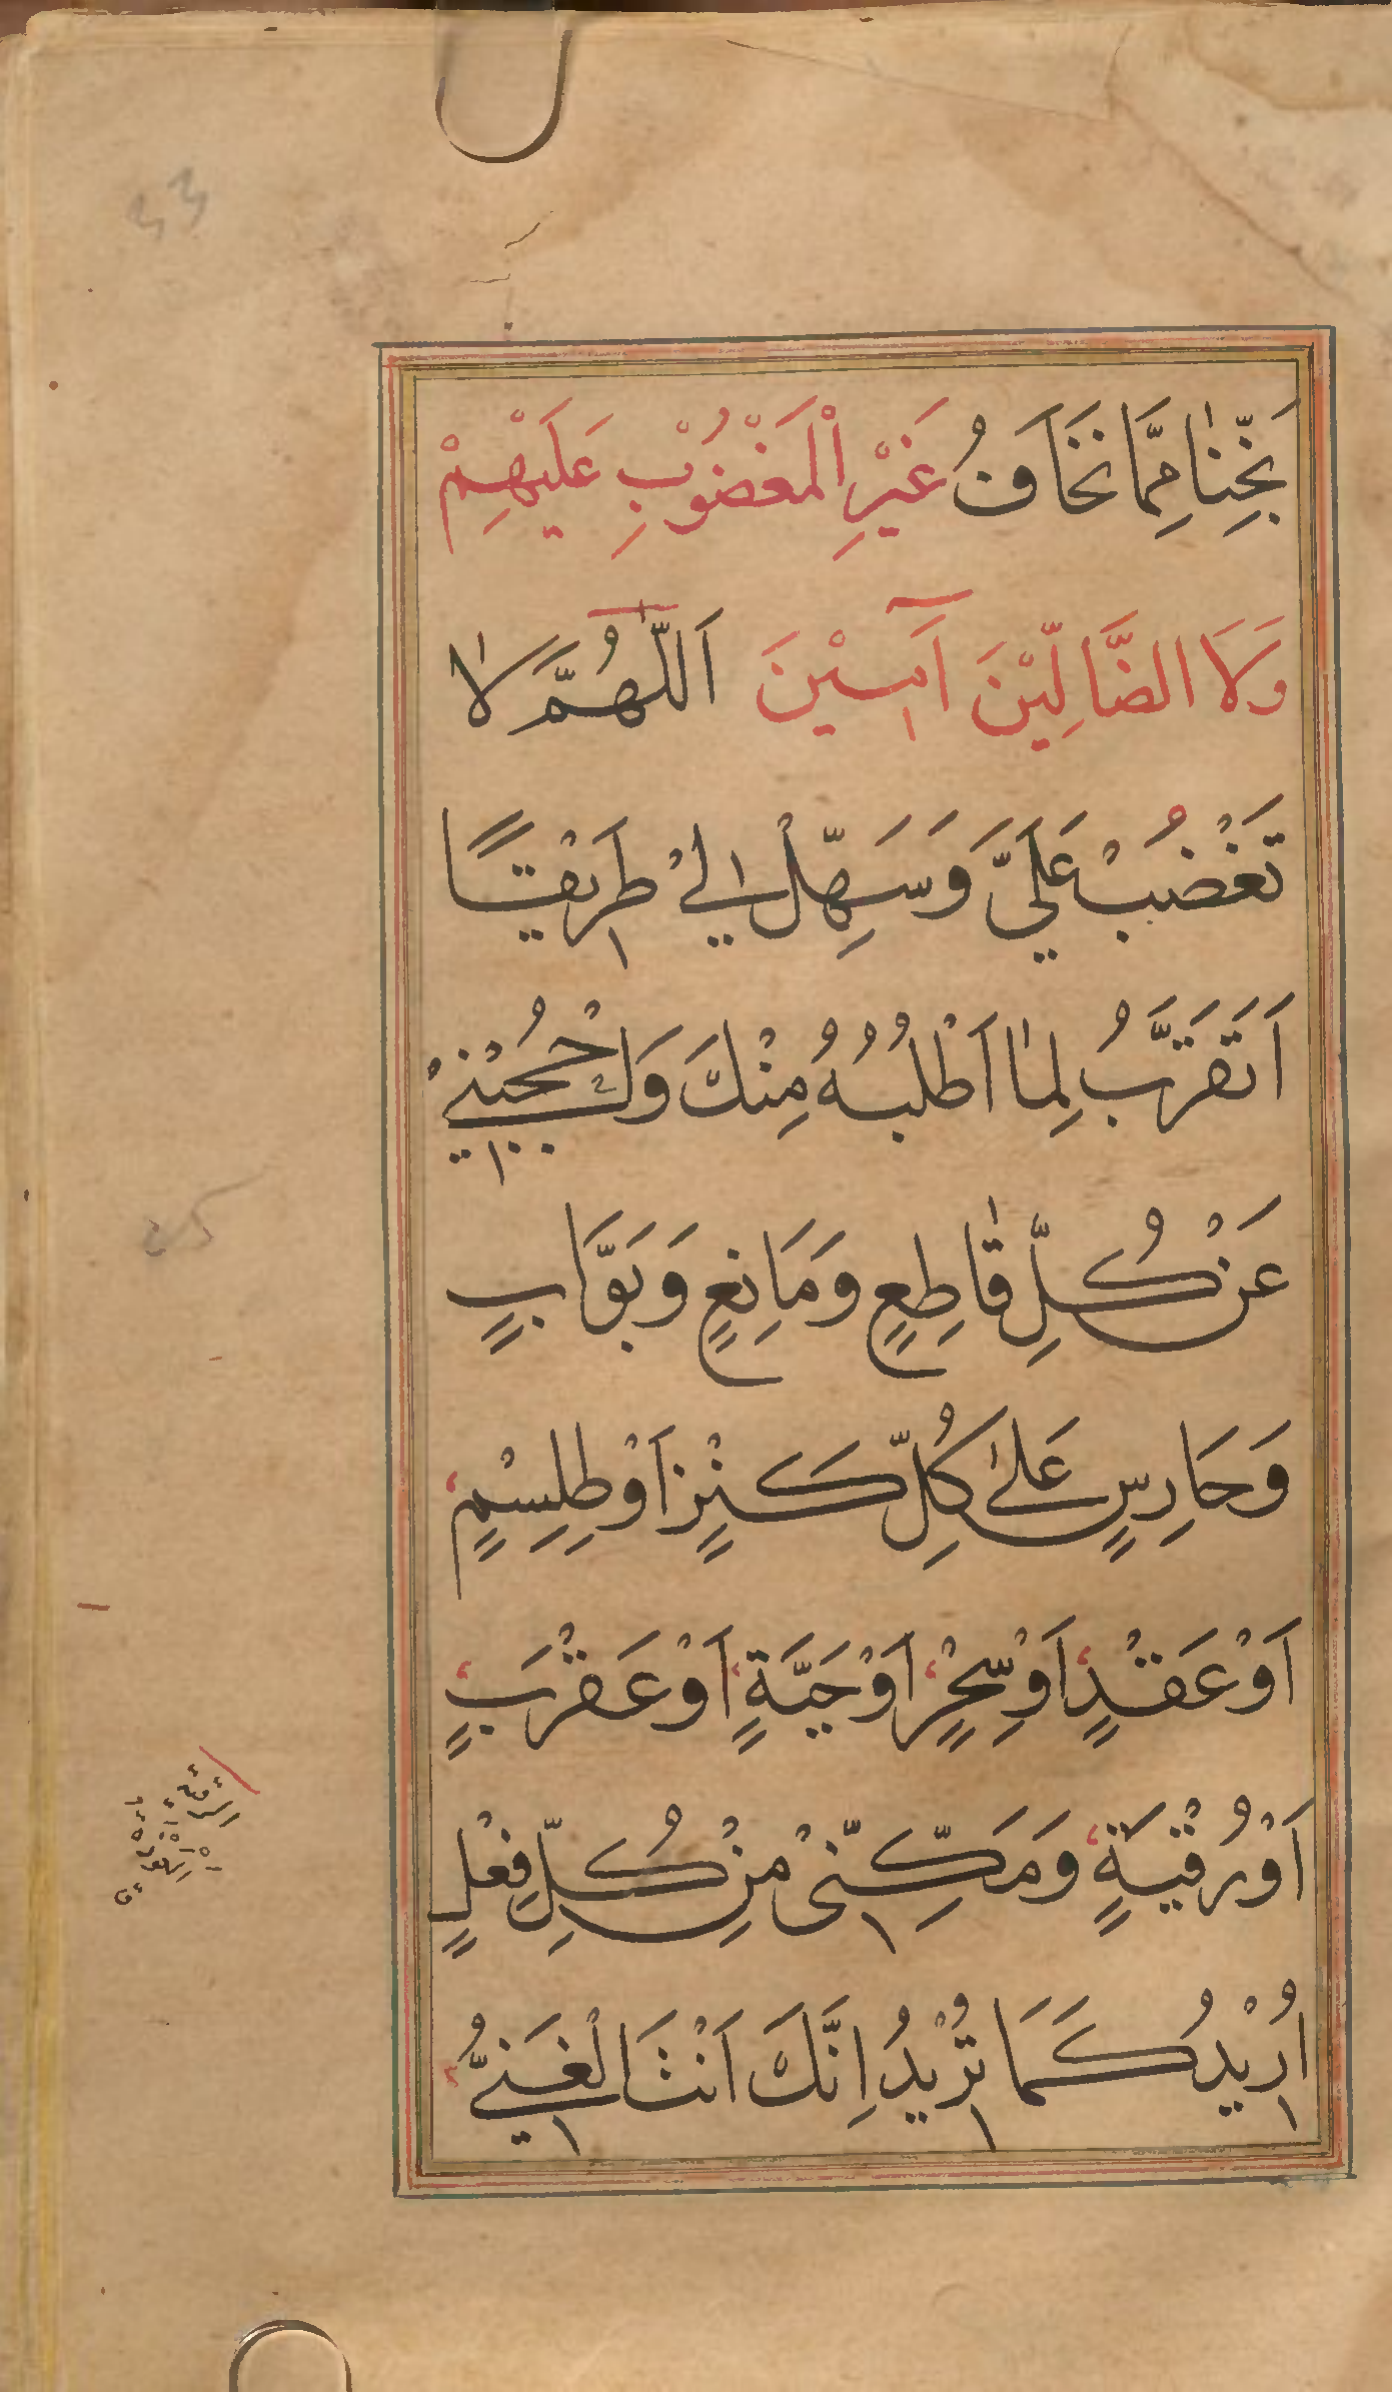 نَجِّنَا مِمَّا نَخَافُ غَيْرِ الْمَغْضُوْبِ عَلَيْهِمْ
وَلَا الضَّالِّيْنَ آمِيْنَ اَللّٰهُمَّ لَا
تَغْضُبْ عَلَيَّ وَسَهِّلْ لِيْ طَرِيْقًا
اَتَقَرَّبُ لِمَا اَطْلُبُهُ مِنْكَ وَلَا
عَنْ كُلِّ قَاطِعٍ وَمَانِعٍ وَبَوَّابٍ
وَحَارِسٍ عَلٰى كُلِّ كَنْزٍ اَوْ طِلِسْمٍ
اَوْ عَقْدٍ اَوْ سِحْرٍ اَوْ حَيَّةٍ اَوْ عَقْرَبٍ
اَوْ رُقْيَةٍ وَمَكِّنِّىْ مِنْ كُلِّ فِعْلٍ
اُرِيْدُ كَمَا تُرِيْدُ اِنَّكَ اَنْتَ الْغَنِيُّ